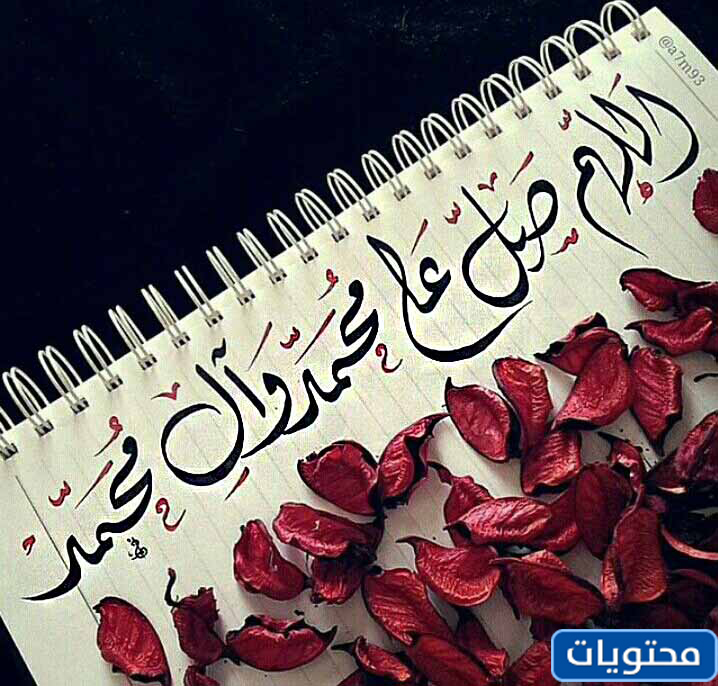 @a7m93
اللهم صَلِّ عَلى مُحَمَّد وَآلِ مُحَمَّد
محتويات